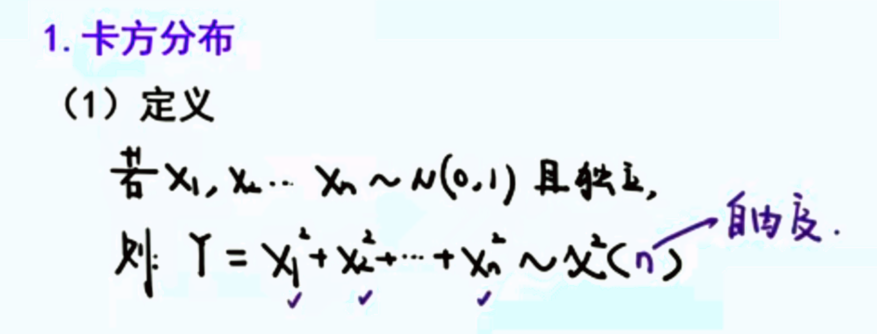 1. 卡方分布
（1）定义
若 X₁, X₂ ... Xₙ ~ N(0,1) 且独立,
则: Y = X₁² + X₂² + ... + Xₙ² ~ χ²(n) 自由度.